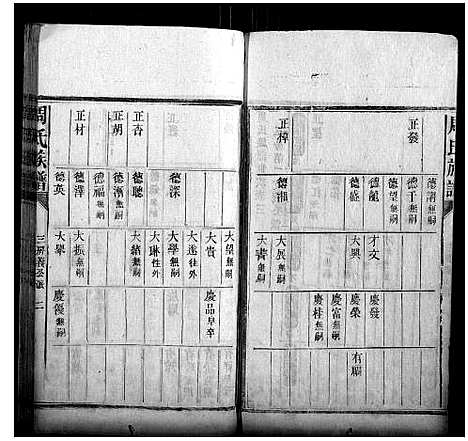 周氏族譜
正發
德謨無嗣
德干無嗣
德望無嗣
德龍
德盛
正樟
德湘
才文
大興
大展無嗣
大書無嗣
慶發
慶榮
慶富無嗣
慶桂無嗣
有賜
德深
正吉
德聰
正胡
德漸無嗣
德福無嗣
正材
德澤
德英
大望無嗣
大貴
大學無嗣
大達往外
大琳往外
大緒無嗣
大振無嗣
大舉
慶品早卒
慶優無嗣
周氏族譜
三房
二